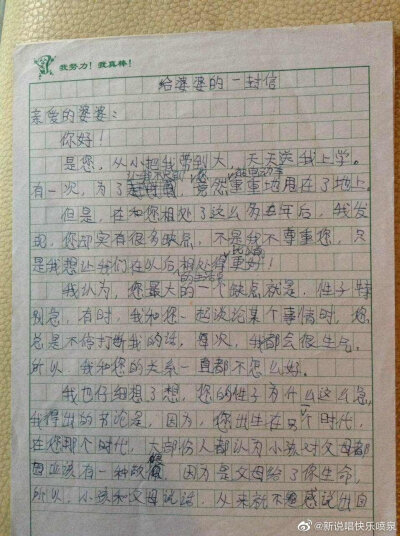 我努力！我真棒！
给婆婆的一封信
亲爱的婆婆：
你好！
是您，从小把我带到大，天天送我上学。
有一次，为了让我不迟到，您骑电动车竟然重重地甩在了地上。
但是，在和您相处了这么多年后，我发
现，您却实有很多缺点，不是我不尊重您，只
是我想让我们在以后的生活里相处得更好！
我认为，您最大的一个缺点就是，性子特
别急，有时，我和您一起谈论某个事情时，您
总是不停打断我的话，每次，我都会很生气。
所以，我和您的关系一直都不怎么好。
我也仔细想了想，您的性子为什么这么急，
我得出的节论是，因为，您出生在另个时代，
在您那个时代，大部份人都认为小孩对父母都
应该有一种 因为是父母给了你生命，
所以，小孩和父母说话，从来就不敢说出自
@新说唱快乐喷泉